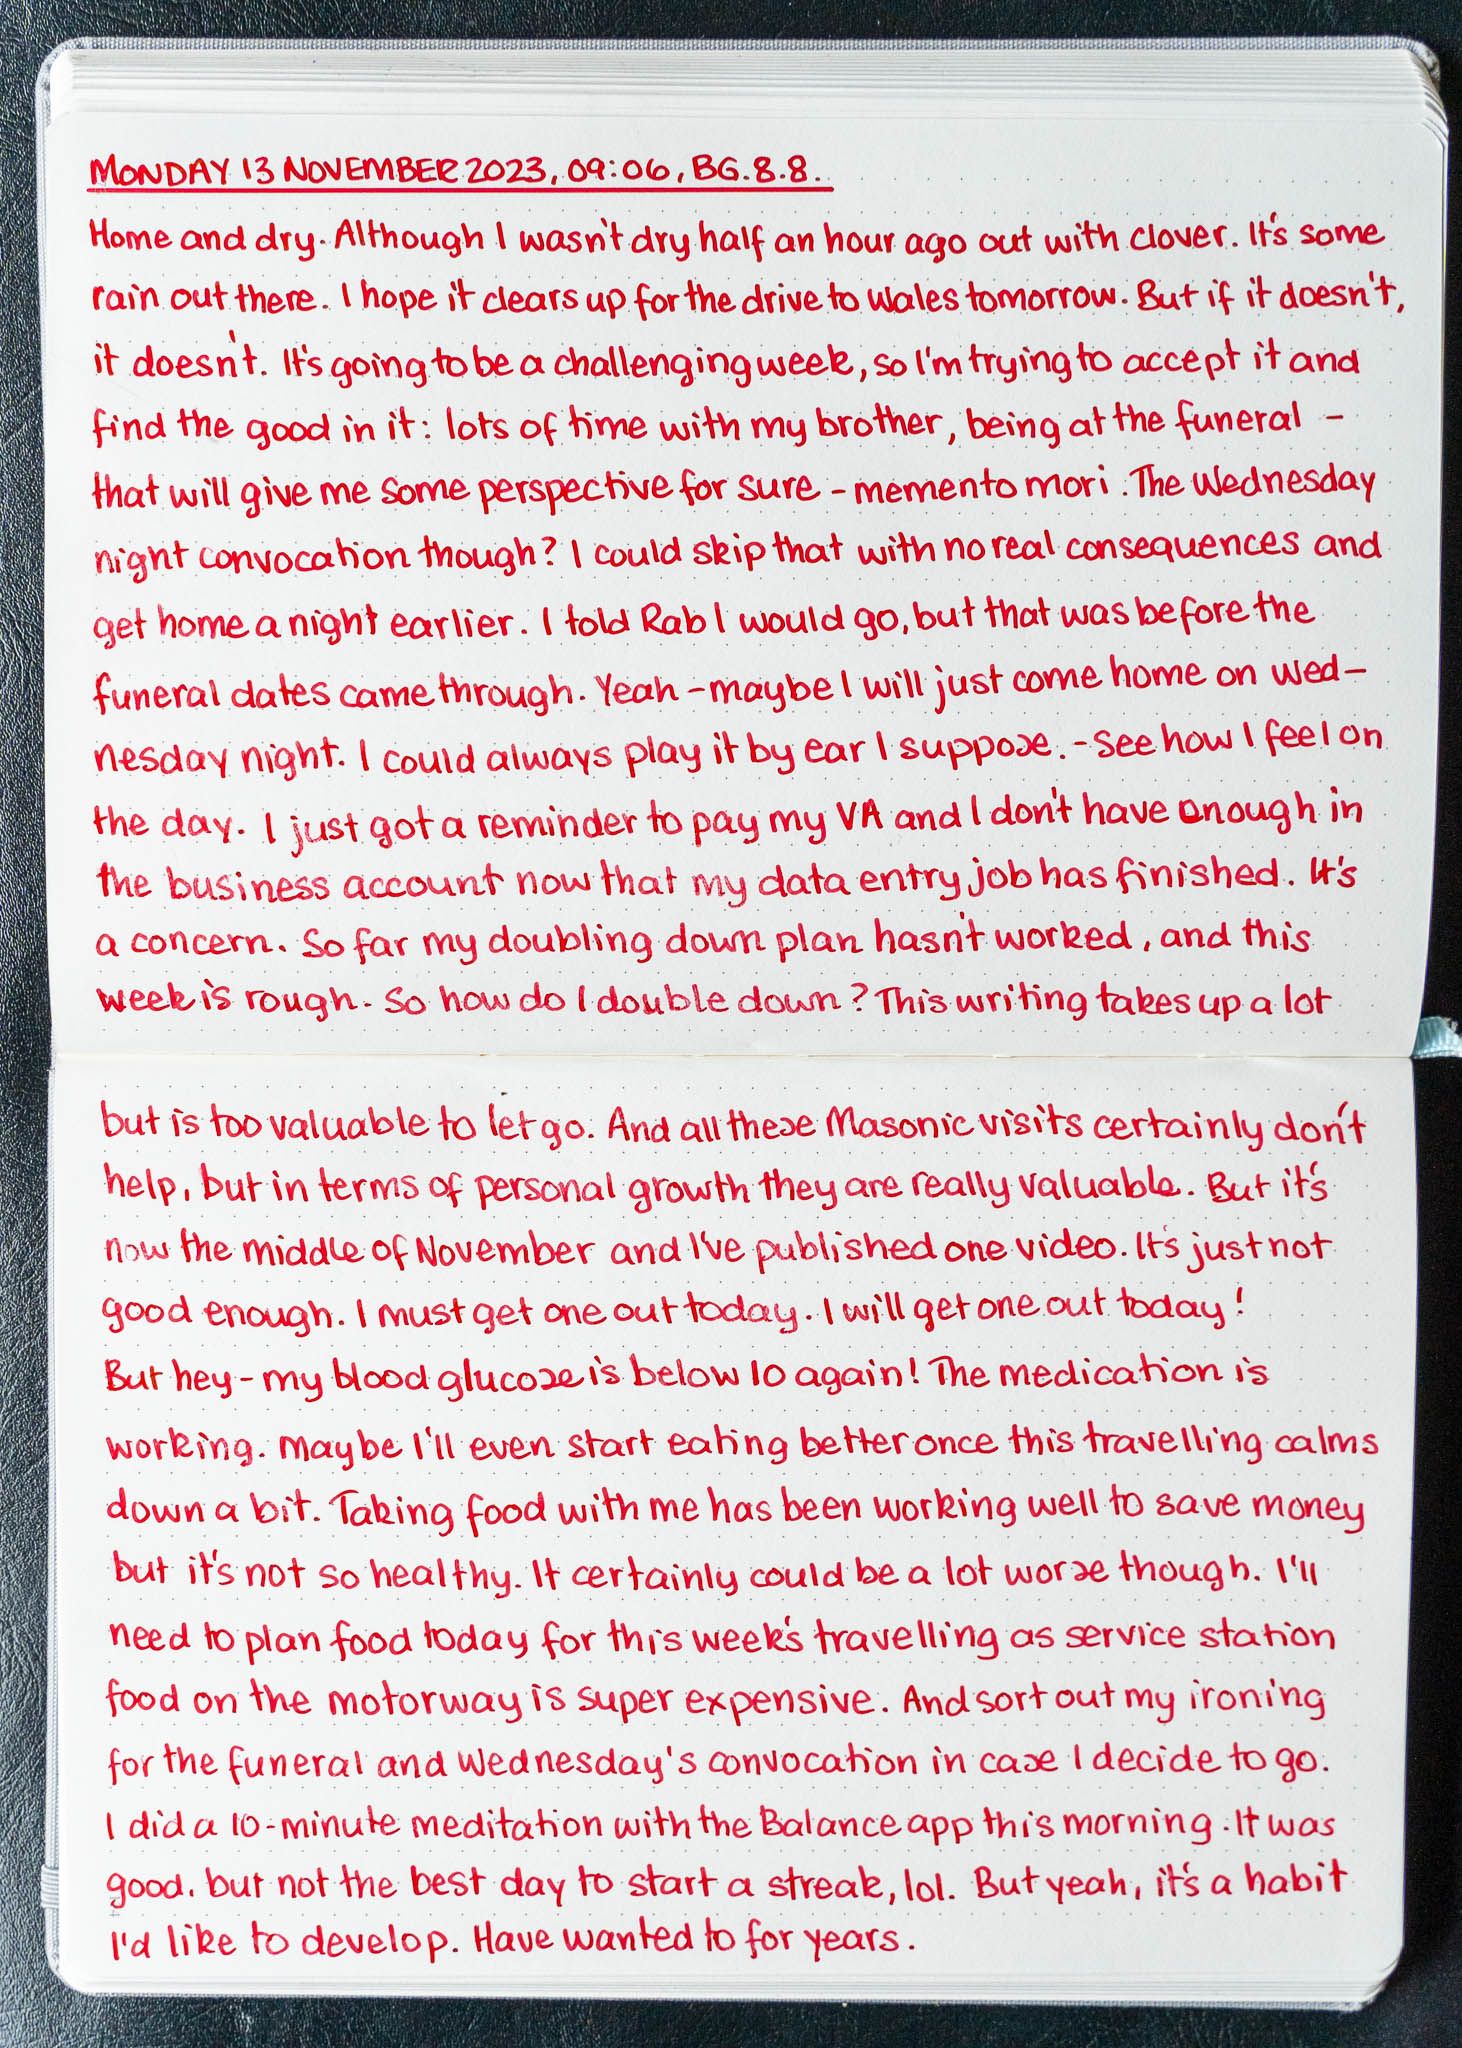 MONDAY 13 NOVEMBER 2023, 09:06, BG.8.8.
Home and dry. Although I wasn't dry half an hour ago out with clover. It's some
rain out there. I hope it clears up for the drive to Wales tomorrow. But if it doesn't,
it doesn't. It's going to be a challenging week, so I'm trying to accept it and
find the good in it: lots of time with my brother, being at the funeral –
that will give me some perspective for sure – memento mori. The Wednesday
night convocation though? I could skip that with no real consequences and
get home a night earlier. I told Rab I would go, but that was before the
funeral dates came through. Yeah – maybe I will just come home on Wed–
nesday night. I could always play it by ear I suppose. – See how I feel on
the day. I just got a reminder to pay my VA and I don't have enough in
the business account now that my data entry job has finished. It's
a concern. So far my doubling down plan hasn't worked, and this
week is rough. So how do I double down? This writing takes up a lot
but is too valuable to let go. And all these Masonic visits certainly don't
help, but in terms of personal growth they are really valuable. But it's
now the middle of November and I've published one video. It's just not
good enough. I must get one out today. I will get one out today!
But hey – my blood glucose is below 10 again! The medication is
working. Maybe I'll even start eating better once this travelling calms
down a bit. Taking food with me has been working well to save money
but it's not so healthy. It certainly could be a lot worse though. I'll
need to plan food today for this week's travelling as service station
food on the motorway is super expensive. And sort out my ironing
for the funeral and Wednesday's convocation in case I decide to go.
I did a 10-minute meditation with the Balance app this morning. It was
good. but not the best day to start a streak, lol. But yeah, it's a habit
I'd like to develop. Have wanted to for years.